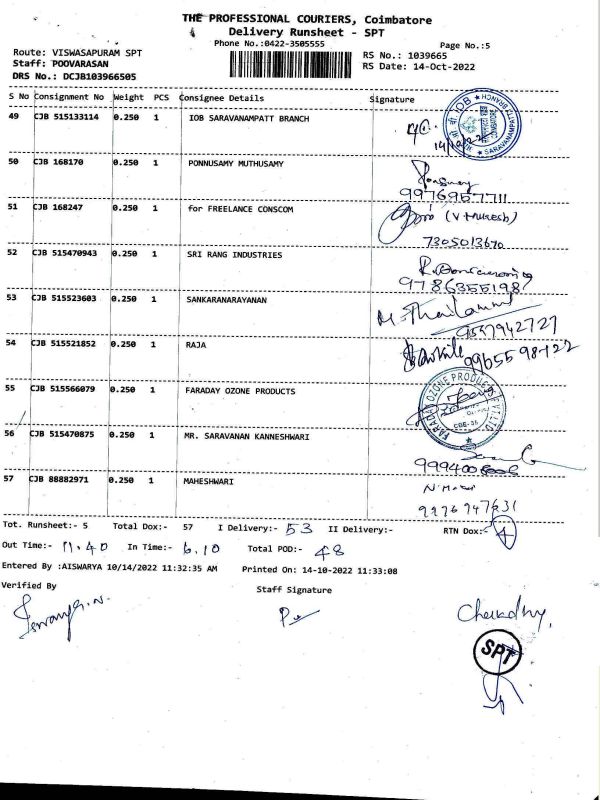 THE PROFESSIONAL COURIERS, Coimbatore
Delivery Runsheet - SPT
Phone No.:0422-3505555 Page No.:5
Route: VISWASAPURAM SPT RS No.: 1039665
Staff: POOVARASAN RS Date: 14-Oct-2022
DRS No.: DCJB103966505
S No Consignment No Weight PCS Consignee Details Signature
49 CJB 515133114 0.250 1 IOB SARAVANAMPATT BRANCH
50 CJB 168170 0.250 1 PONNUSAMY MUTHUSAMY
9976957711
51 CJB 168247 0.250 1 for FREELANCE CONSCOM
7305013670
52 CJB 515470943 0.250 1 SRI RANG INDUSTRIES
9786355198
53 CJB 515523603 0.250 1 SANKARANARAYANAN
M. Thailammal
9557942727
54 CJB 515521852 0.250 1 RAJA
55 CJB 515566079 0.250 1 FARADAY OZONE PRODUCTS
FARADAY OZONE PRODUCTS PVT LTD
56 CJB 515470875 0.250 1 MR. SARAVANAN KANNESHWARI
57 CJB 88882971 0.250 1 MAHESHWARI
9976947631
Tot. Runsheet:- 5 Total Dox:- 57 I Delivery:- 53 II Delivery:- RTN Dox:- 4
Out Time:- 11.40 In Time:- 6.10 Total POD:- 48
Entered By :AISWARYA 10/14/2022 11:32:35 AM Printed On: 14-10-2022 11:33:08
Verified By Staff Signature
SPT